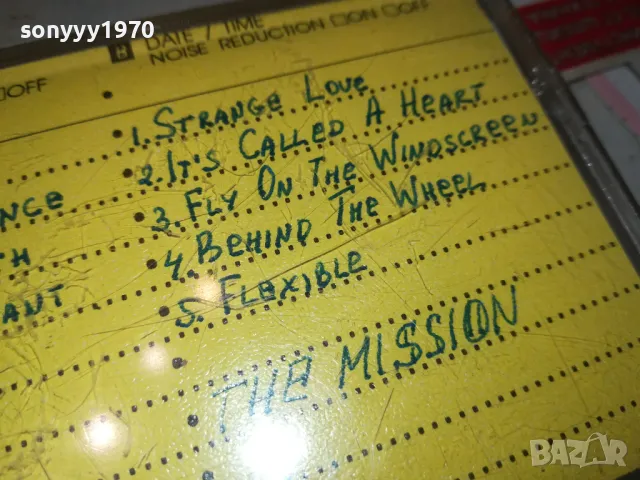 sonyyy1970
B DATE / TIME
NOISE REDUCTION □ON □OFF
□OFF
1. STRANGE LOVE
2. IT'S CALLED A HEART
3. FLY ON THE WINDSCREEN
4. BEHIND THE WHEEL
5. FLEXIBLE
THE MISSION
BAZAR